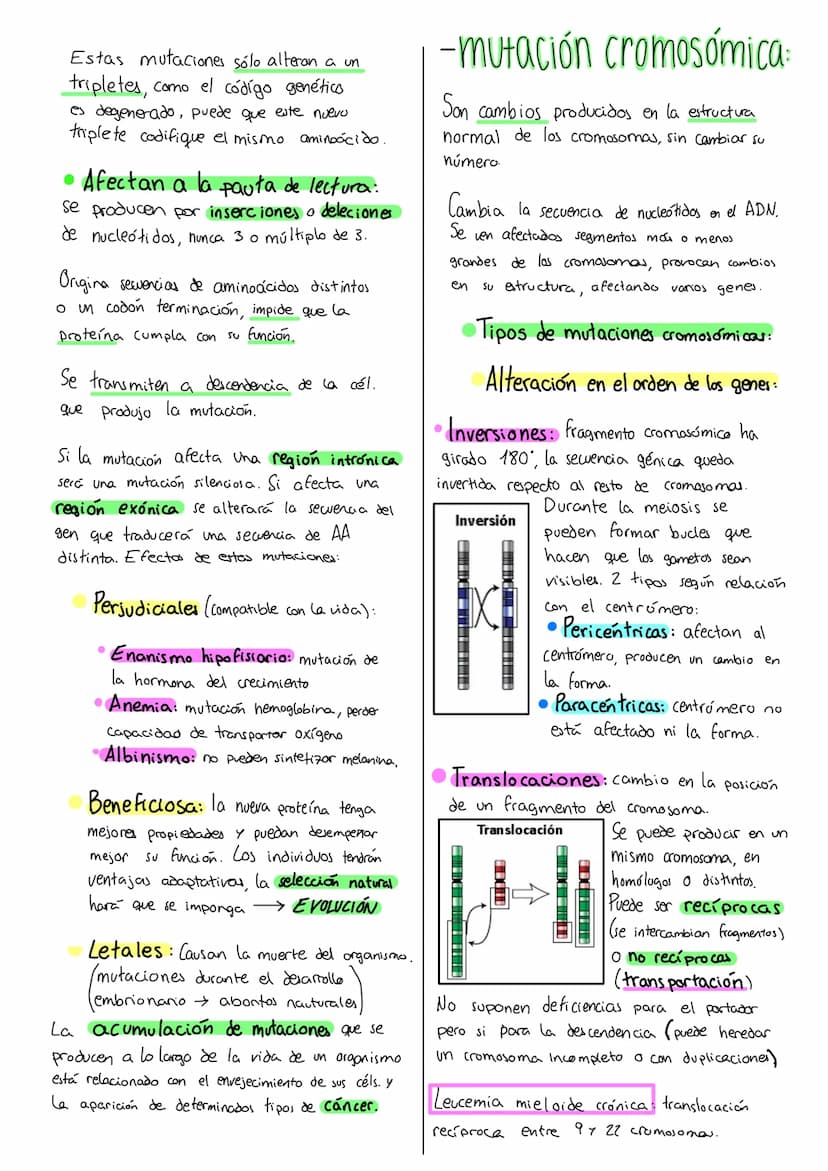 Estas mutaciones sólo alteran a un
tripletes, como el código genético
es degenerado, puede que este nuevo
triplete codifique el mismo aminoácido.
• Afectan a la pauta de lectura:
se producen por inserciones o deleciones
de nucleótidos, nunca 3 o múltiplo de 3.
Origina secuencias de aminoácidos distintos
o un codón terminación, impide que la
proteína cumpla con su función.
Se transmiten a descendencia de la cél.
que produjo la mutación.
Si la mutación afecta una región intrónica
será una mutación silenciosa. Si afecta una
región exónica se alterará la secuencia del
gen que traducerá una secuencia de AA
distinta. Efectos de estas mutaciones:
• Perjudiciales (compatible con la vida):
• Enanismo hipofisiario: mutación de
la hormona del crecimiento
• Anemia: mutación hemoglobina, perder
capacidad de transportar oxígeno
• Albinismo: no pueden sintetizar melanina.
• Beneficiosa: la nueva proteína tenga
mejores propiedades y puedan desempeñar
mejor su función. Los individuos tendrán
ventajas adaptativas, la selección natural
hará que se imponga → EVOLUCIÓN
• Letales: Causan la muerte del organismo.
(mutaciones durante el desarrollo
embrionario → abortos nauturales)
La acumulación de mutaciones que se
producen a lo largo de la vida de un organismo
está relacionado con el envejecimiento de sus céls. y
la aparición de determinados tipos de cáncer.
-mutación cromosómica:
Son cambios producidos en la estructura
normal de los cromosomas, sin cambiar su
número.
Cambia la secuencia de nucleótidos en el ADN.
Se ven afectados segmentos más o menos
grandes de los cromosomas, provocan cambios
en su estructura, afectando varios genes.
• Tipos de mutaciones cromosómicas:
• Alteración en el orden de los genes:
• Inversiones: fragmento cromosómico ha
girado 180°, la secuencia génica queda
invertida respecto al resto de cromosomas.
Inversión
Durante la meiosis se
pueden formar bucles que
hacen que los gametos sean
visibles. 2 tipos según relación
con el centrómero:
• Pericéntricas: afectan al
centrómero, producen un cambio en
la forma.
• Paracéntricas: centrómero no
está afectado ni la forma.
• Translocaciones: cambio en la posición
de un fragmento del cromosoma.
Translocación
Se puede producir en un
mismo cromosoma, en
homólogos o distintos.
Puede ser recíprocas
(se intercambian fragmentos)
o no recíprocas
(transportación)
No suponen deficiencias para el portador
pero si para la descendencia (puede heredar
un cromosoma incompleto o con duplicaciones)
Leucemia mieloide crónica: translocación
recíproca entre 9 y 22 cromosomas.